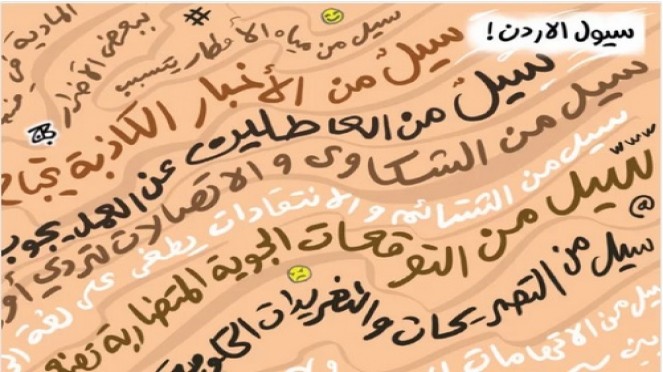 سيول الاردن!
سيل من مياه الأمطار يتسبب
ببعض الأضرار
المادية في
سيل من الأخبار الكاذبة يجتاح
سيل من العاطلين عن العمل يجوب
سيل من الشكاوى و الاتصالات لتردي
سيل من التشائم و الانتقادات يطغى على لغة
www
سيل من التوقعات الجوية المتضاربة
@
سيل من التصريحات والتغريدات الحكومية
سيل من الاتهامات
#